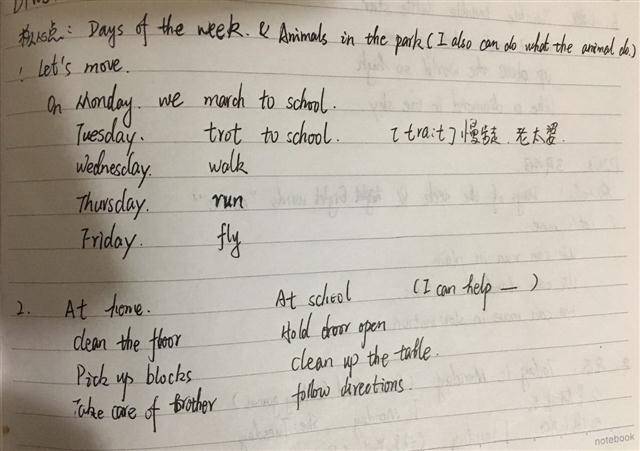 核心点: Days of the week. & Animals in the park (I also can do what the animal do.)
1 Let's move.
On Monday. we march to school.
Tuesday. trot to school. [trait] 慢走. 老太婆.
Wednesday. walk
Thursday. run
Friday. fly
2. At home. At school (I can help — )
clean the floor Hold door open
Pick up blocks clean up the table.
Take care of brother follow directions.
notebook